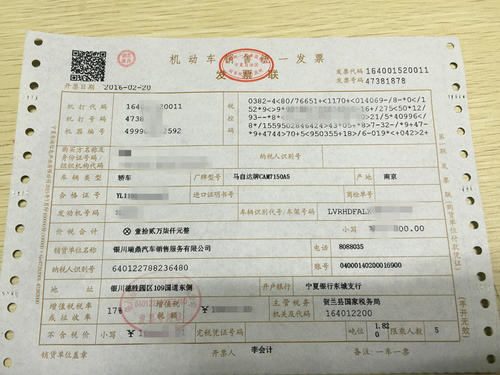 机动车销售统一发票
发票联
发票代码 164001520011
发票号码 47381878
开票日期 2016-02-20
机打代码 164 0011
机打号码 4738
机器编号 49990 2592
税控码
0382-4<80/76651+<1170+<014069-/8-*0</1
购买方名称及身份证号码/组织机构代码
纳税人识别号
车辆类型 轿车 厂牌型号 马自达牌CAM7150A5 产地 南京
合格证号 YL1 进口证明书号 商检单号
发动机号码 车辆识别代号/车架号码 LVRHDFAL
价税合计 ⊗ 壹拾贰万柒仟元整 小写 000.00
销货单位名称 银川瑞鼎汽车销售服务有限公司 电话 8088035
纳税人识别号 640122788236480 账号 04000140200016900
地址 银川德胜园区109国道东侧 开户银行 宁夏银行东城支行
增值税税率或征收率 17% 增值税税额 主管税务机关及代码 贺兰县国家税务局
164012200
不含税价 小写 完税凭证号码 吨位 1.820 限乘人数 5
销货单位盖章 开票人 李会计 备注:一车一票